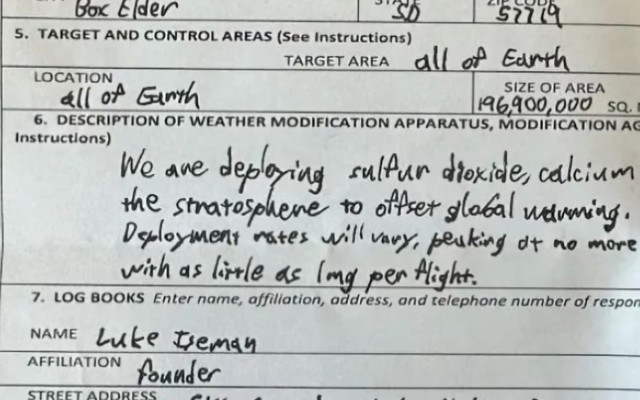 Box Elder SD 57719
5. TARGET AND CONTROL AREAS (See Instructions)
TARGET AREA all of Earth
LOCATION SIZE OF AREA
all of Earth 196,900,000 SQ.
6. DESCRIPTION OF WEATHER MODIFICATION APPARATUS, MODIFICATION AG
Instructions)
We are deploying sulfur dioxide, calcium
the stratosphere to offset global warming.
Deployment rates will vary, peaking at no more
with as little as 1mg per flight.
7. LOG BOOKS Enter name, affiliation, address, and telephone number of respon
NAME Luke Iseman
AFFILIATION founder
STREET ADDRESS